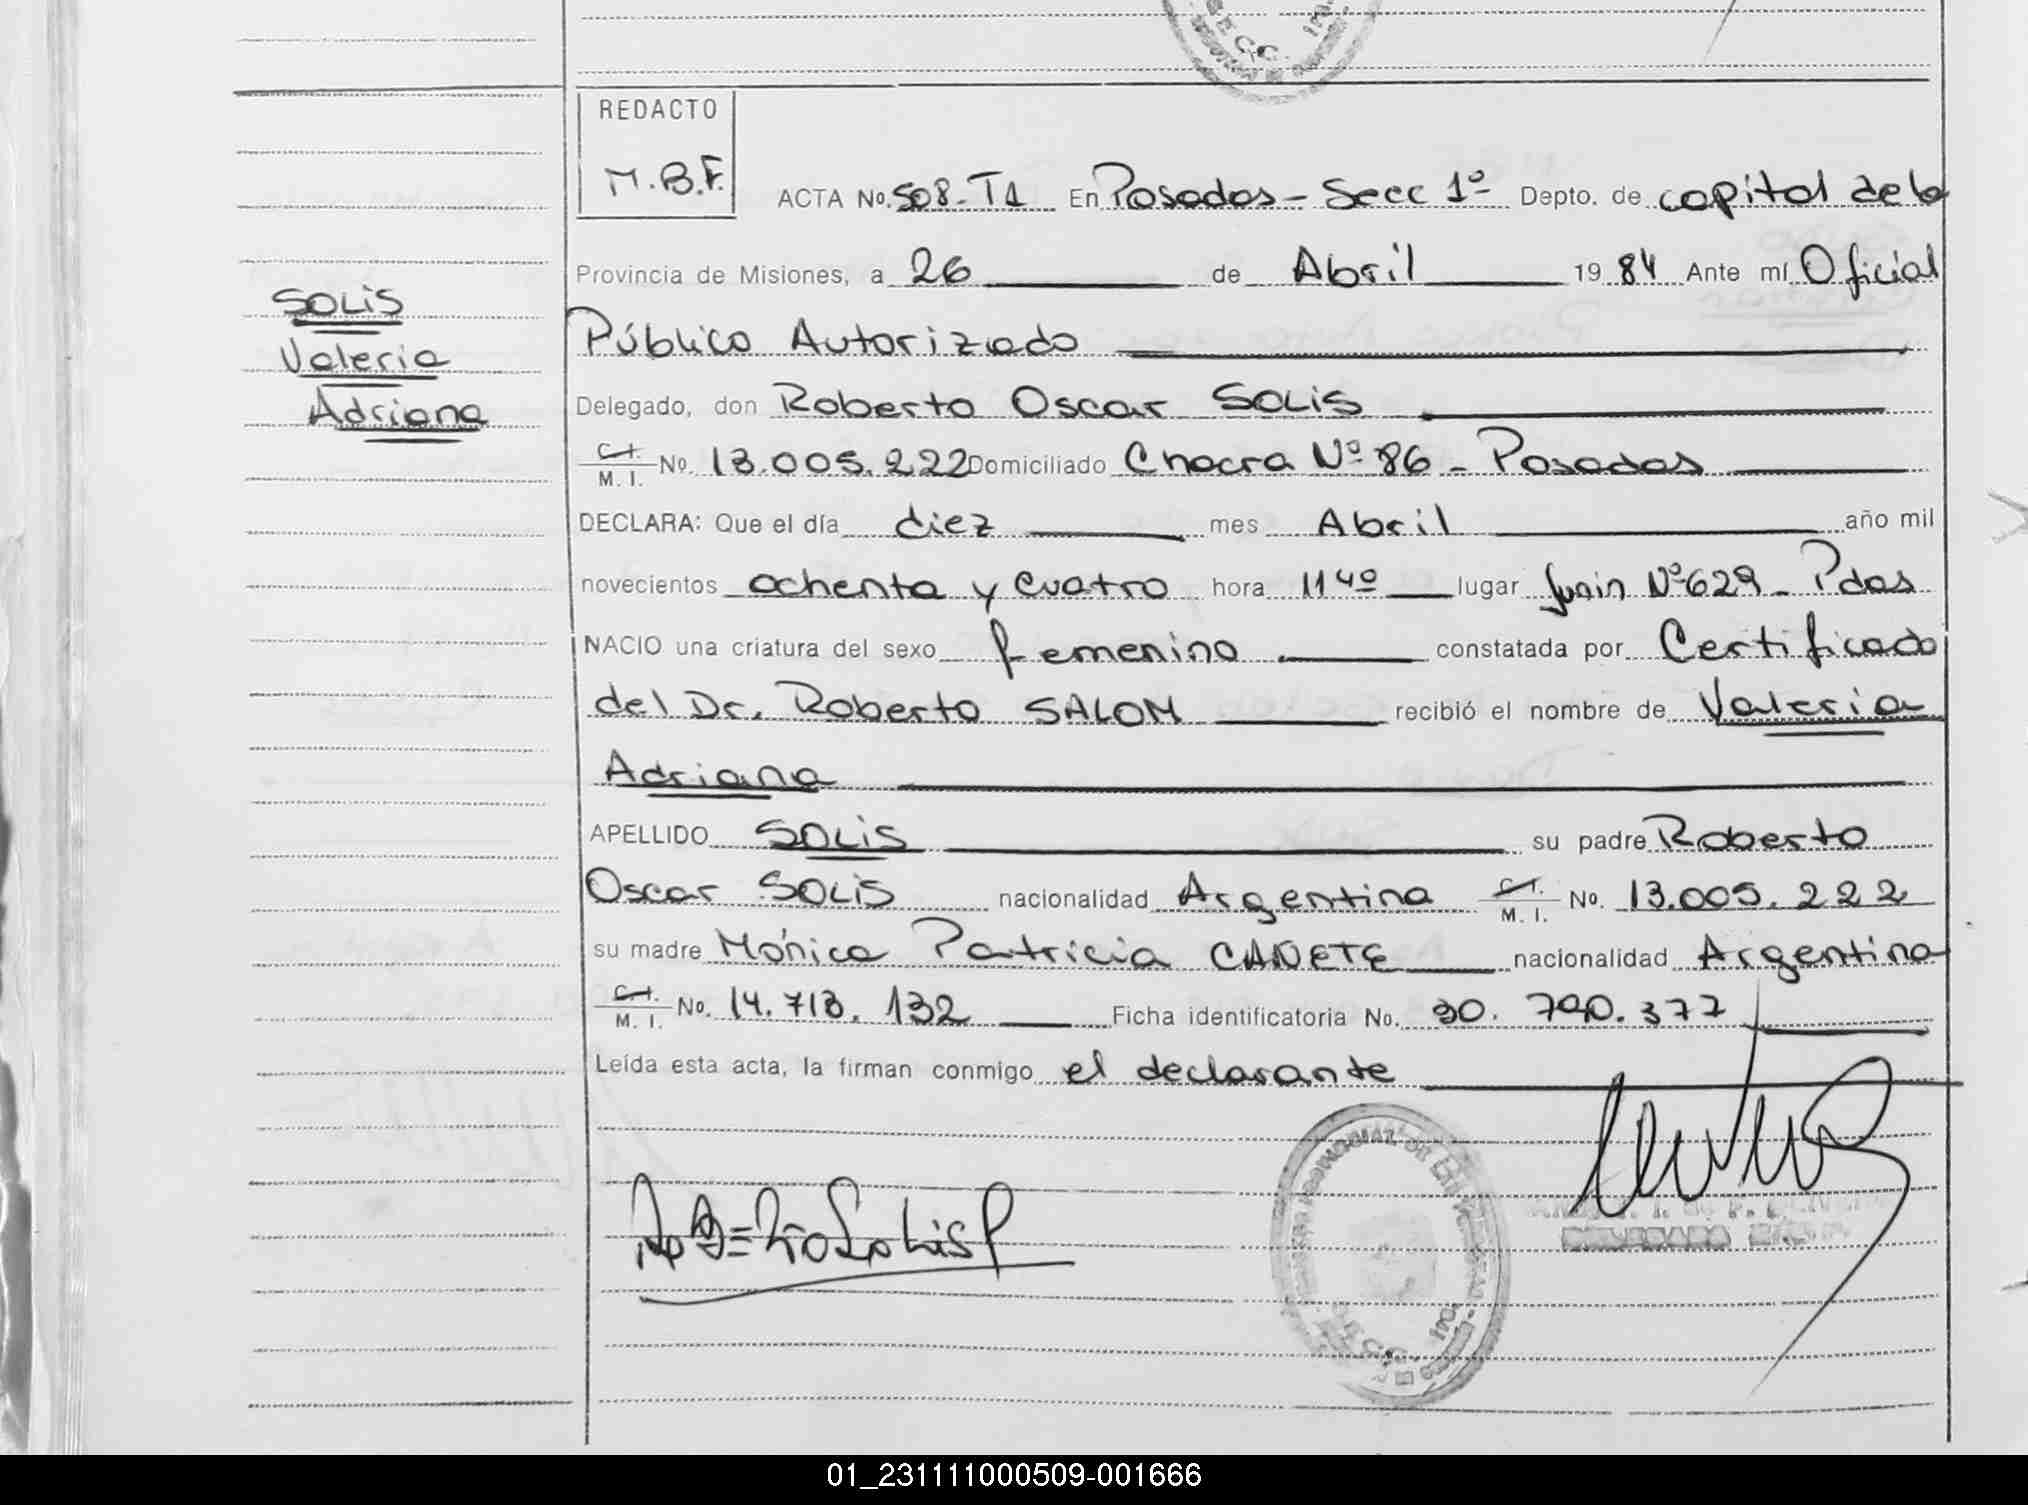 REDACTO
M.B.F.
ACTA No. 508-T1 En Posadas - Secc 1º Depto. de capital de la
Provincia de Misiones, a 26 de Abril 1984 Ante mí Oficial
Público Autorizado
SOLIS
Valeria
Adriana
Delegado, don Roberto Oscar SOLIS
C.I. M. I. No. 13.005.222 Domiciliado Chacra Nº 86 - Posadas
DECLARA: Que el día diez mes Abril año mil
novecientos ochenta y cuatro hora 11 40 lugar Junin Nº 629 - Pdas
NACIO una criatura del sexo femenino constatada por Certificado
del Dr. Roberto SALOM recibió el nombre de Valeria
Adriana
APELLIDO SOLIS su padre Roberto
Oscar SOLIS nacionalidad Argentina C.I. M. I. No. 13.005.222
su madre Mónica Patricia CAÑETE nacionalidad Argentina
C.I. M. I. No. 14.713.132 Ficha identificatoria No. 30.790.377
Leída esta acta, la firman conmigo el declarante
01_231111000509-001666